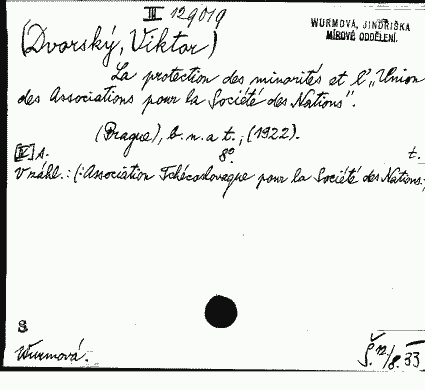 III 129019
WURMOVÁ, JINDŘIŠKA
MÍROVÉ ODDĚLENÍ.
(Dvorský, Viktor)
La protection des minorités et l' „Union
des Associations pour la Société des Nations".
(Prague), b. n. a t., (1922).
[IV] s. 8° t.
V záhl.: (: Association Tchécoslovaque pour la Société des Nations:
S
Wurmová.
Š. 12/8. 33